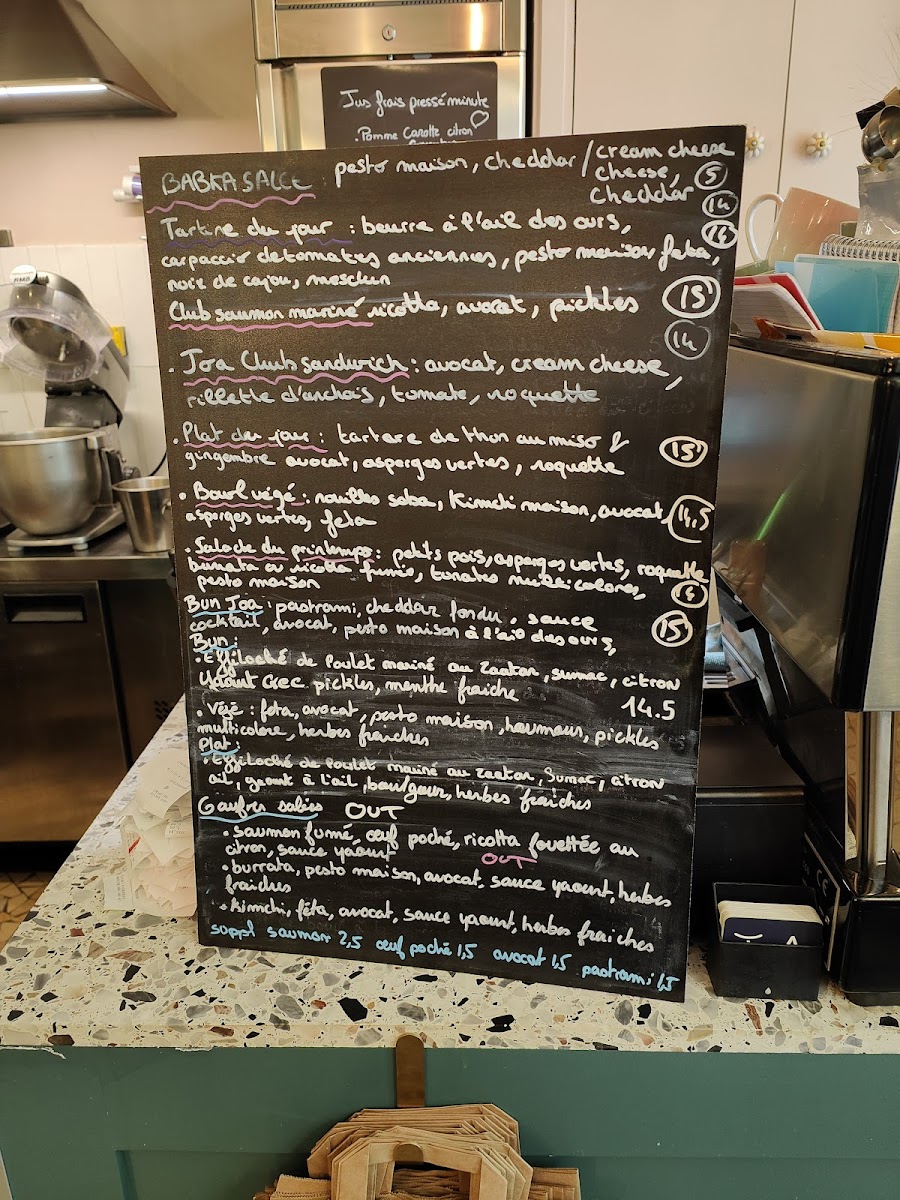 Jus frais pressé minute
• Pomme Carotte citron
BABKA SALÉE : pesto maison, cheddar / cream cheese
cheese, 5
cheddar 14
Tartine du jour : beurre à l'ail des ours, 14
carpaccio de tomates anciennes, pesto maison feta,
noix de cajou, mesclun
Club saumon mariné ricotta, avocat, pickles 15
14
• Joa Club sandwich : avocat, cream cheese,
rillette d'anchois, tomate, roquette
• Plat du jour : tartare de thon au miso & 15
gingembre avocat, asperges vertes, roquette
• Bowl végé : nouilles soba, Kimchi maison, avocat, 14,5
asperges vertes, feta
• Salade du printemps : petits pois, asperges vertes, roquette
burrata ou ricotta fumée, tomates multicolores,
pesto maison
Bun Joa : pastrami, cheddar fondu, sauce
cocktail, avocat, pesto maison à l'ail des ours, 15
Bun :
• Effiloché de Poulet mariné au zaatar, sumac, citron
Yaourt Grec pickles, menthe fraiche 14.5
• Végé : feta, avocat, pesto maison, houmous, pickles
multicolore, herbes fraiches
Plat :
• Effiloché de Poulet mariné au zaatar, sumac, citron
ail, yaourt à l'ail, boulgour, herbes fraiches
Gaufres salées OUT
• saumon fumé, œuf poché, ricotta fouettée au
citron, sauce yaourt OUT
• burrata, pesto maison, avocat, sauce yaourt, herbes
fraiches
• Kimchi, féta, avocat, sauce yaourt, herbes fraiches
suppl saumon 2,5 œuf poché 1,5 avocat 1,5 pastrami 1,5